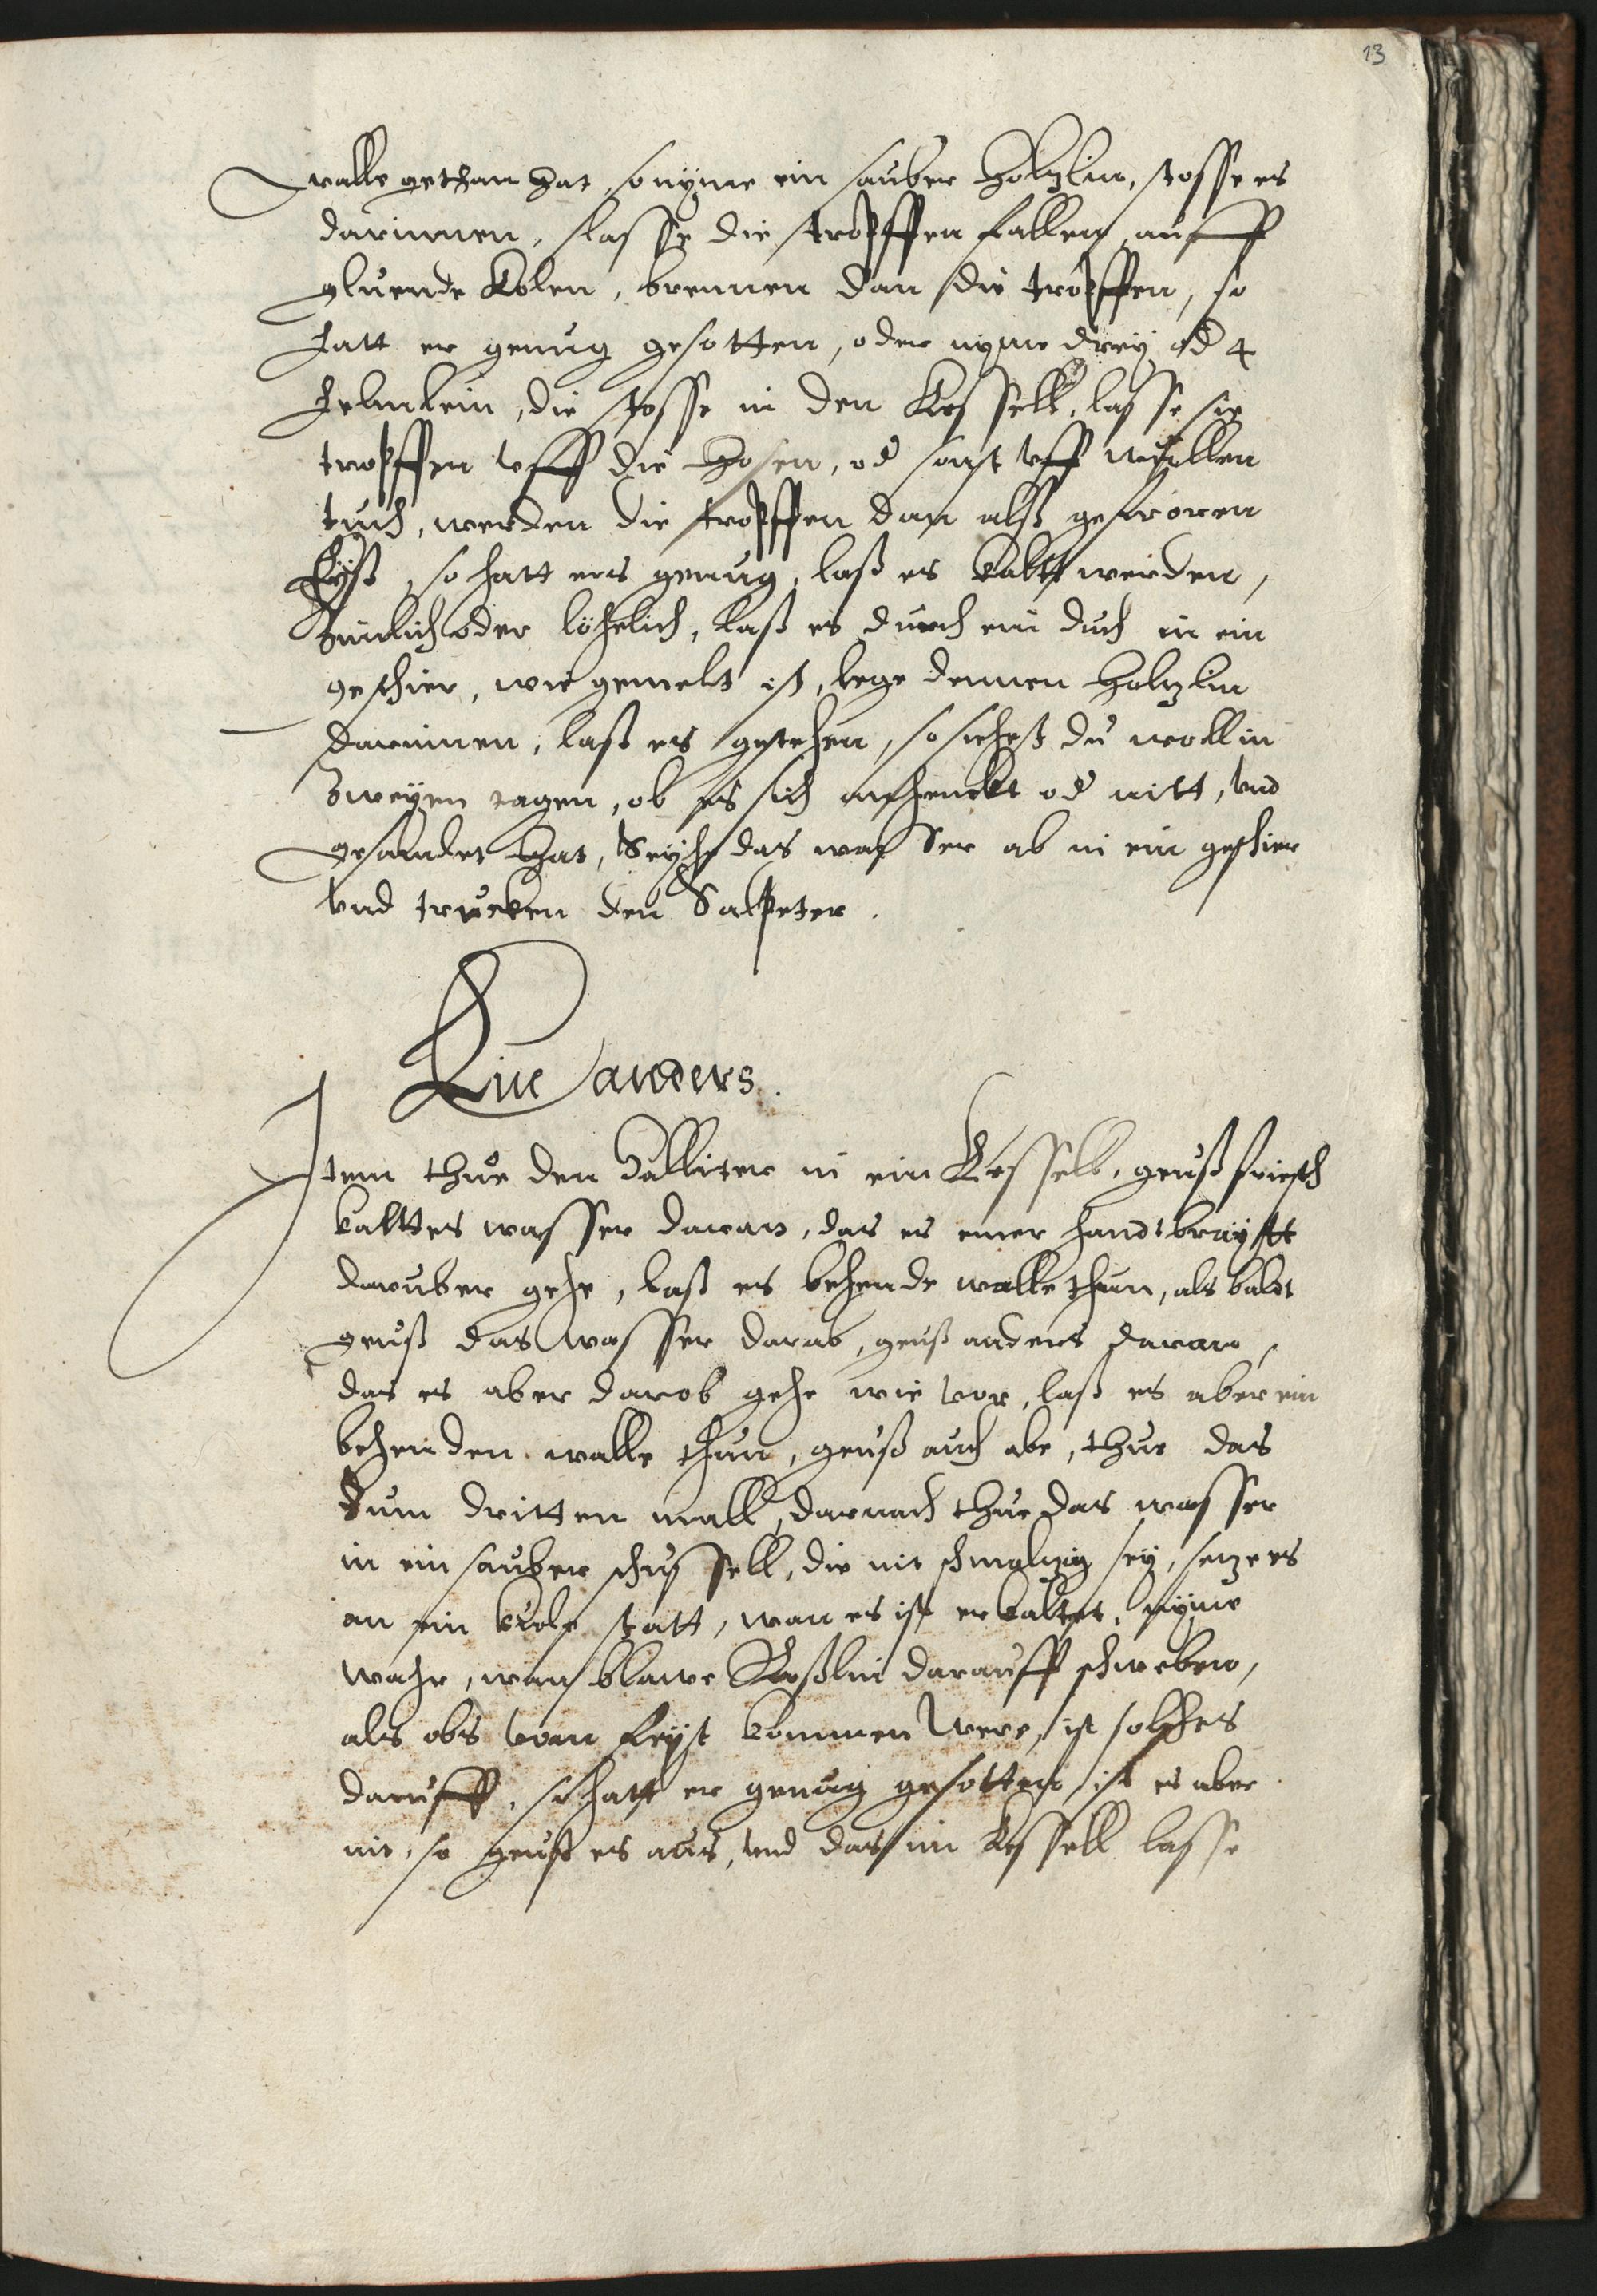 13
walle gethan hat, so nyme ein sauber holtzlin, stosse es
darinnen, lasse die tropffen fallen auff
gluende kolen, brennen dan die tropffen, so
hatt er genug gesotten, oder nyme drey od 4
helmlein, die stosse in den kessell, lasse sie
tropffen uff die hosen, od sonst uff wullen
tuch, werden die tropffen dan alß gefroren
Eyß, so hatt ers genug, laß es kaltt werden,
zimlich oder löhelich, laß es durch ein duch in ein
geschier, wie gemelt ist, lege dennen holtzlin
darinnen, laß es gestehen, so sichest du woll in
zweyen tagen, ob es sich anhenckt od nitt, und
gesamlet hat, Seyhe das wasser ab in ein geschier
und trucken den Salpeter.
Ein anders.
Item thue den Salliter in ein kessell, geuß friesch
kalttes wasser daran, das es einer handtbraytt
daruber gehe, laß es behende walle thun, als baldt
geuß das wasser darab, geuß anders daran,
das es aber darob gehe wie vor, laß es aber ein
behenden walle thun, geuß auch abe, thue das
zum dritten mall, darnach thue das wasser
in ein sauber schussell, die nit schmaltzig sey, setze es
an ein kule statt, wan es ist erkaltet, nyme
wahr, wan blawe Roßlin darauff schweben,
als obs von feyst kommen were, ist solches
daruff, so hatt er genug gesotten, ist es aber
nit, so geust es aus, und das im kessell lasse